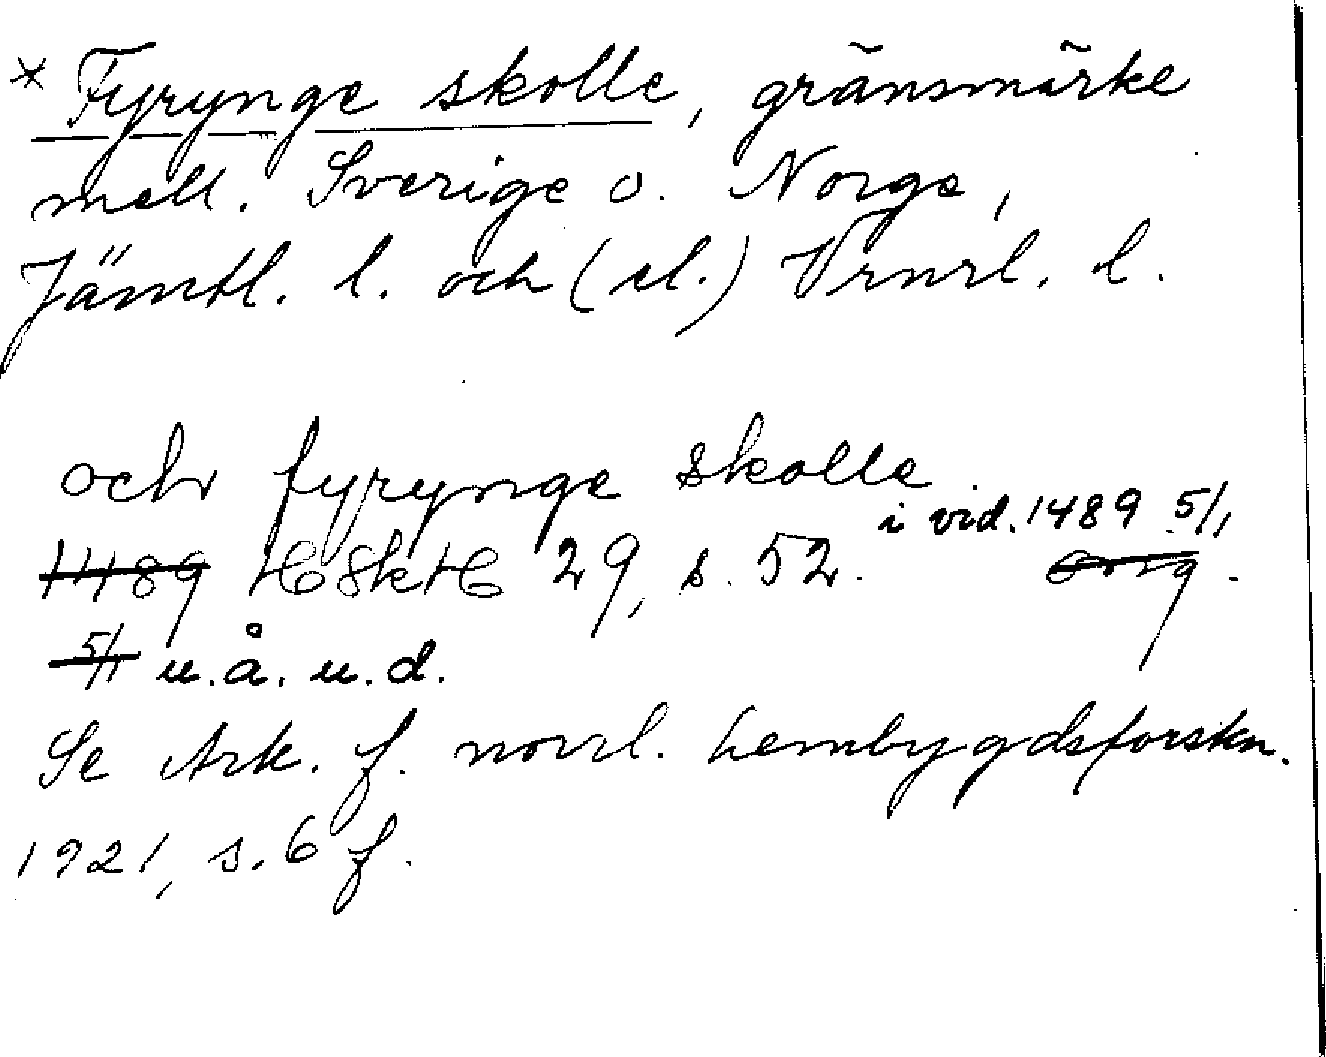 * Fyrynge skolle, gränsmärke
mell. Sverige o. Norge,
Jämtl. l. och (el.) Vrmrl. l.
och fyrynge skolle
i vid. 1489 5/1
1489 HSkH 29, s. 52. Orig.
5/1 u.å. u.d.
Se Ark. f. norrl. hembygdsforskn.
1921, s. 6 f.